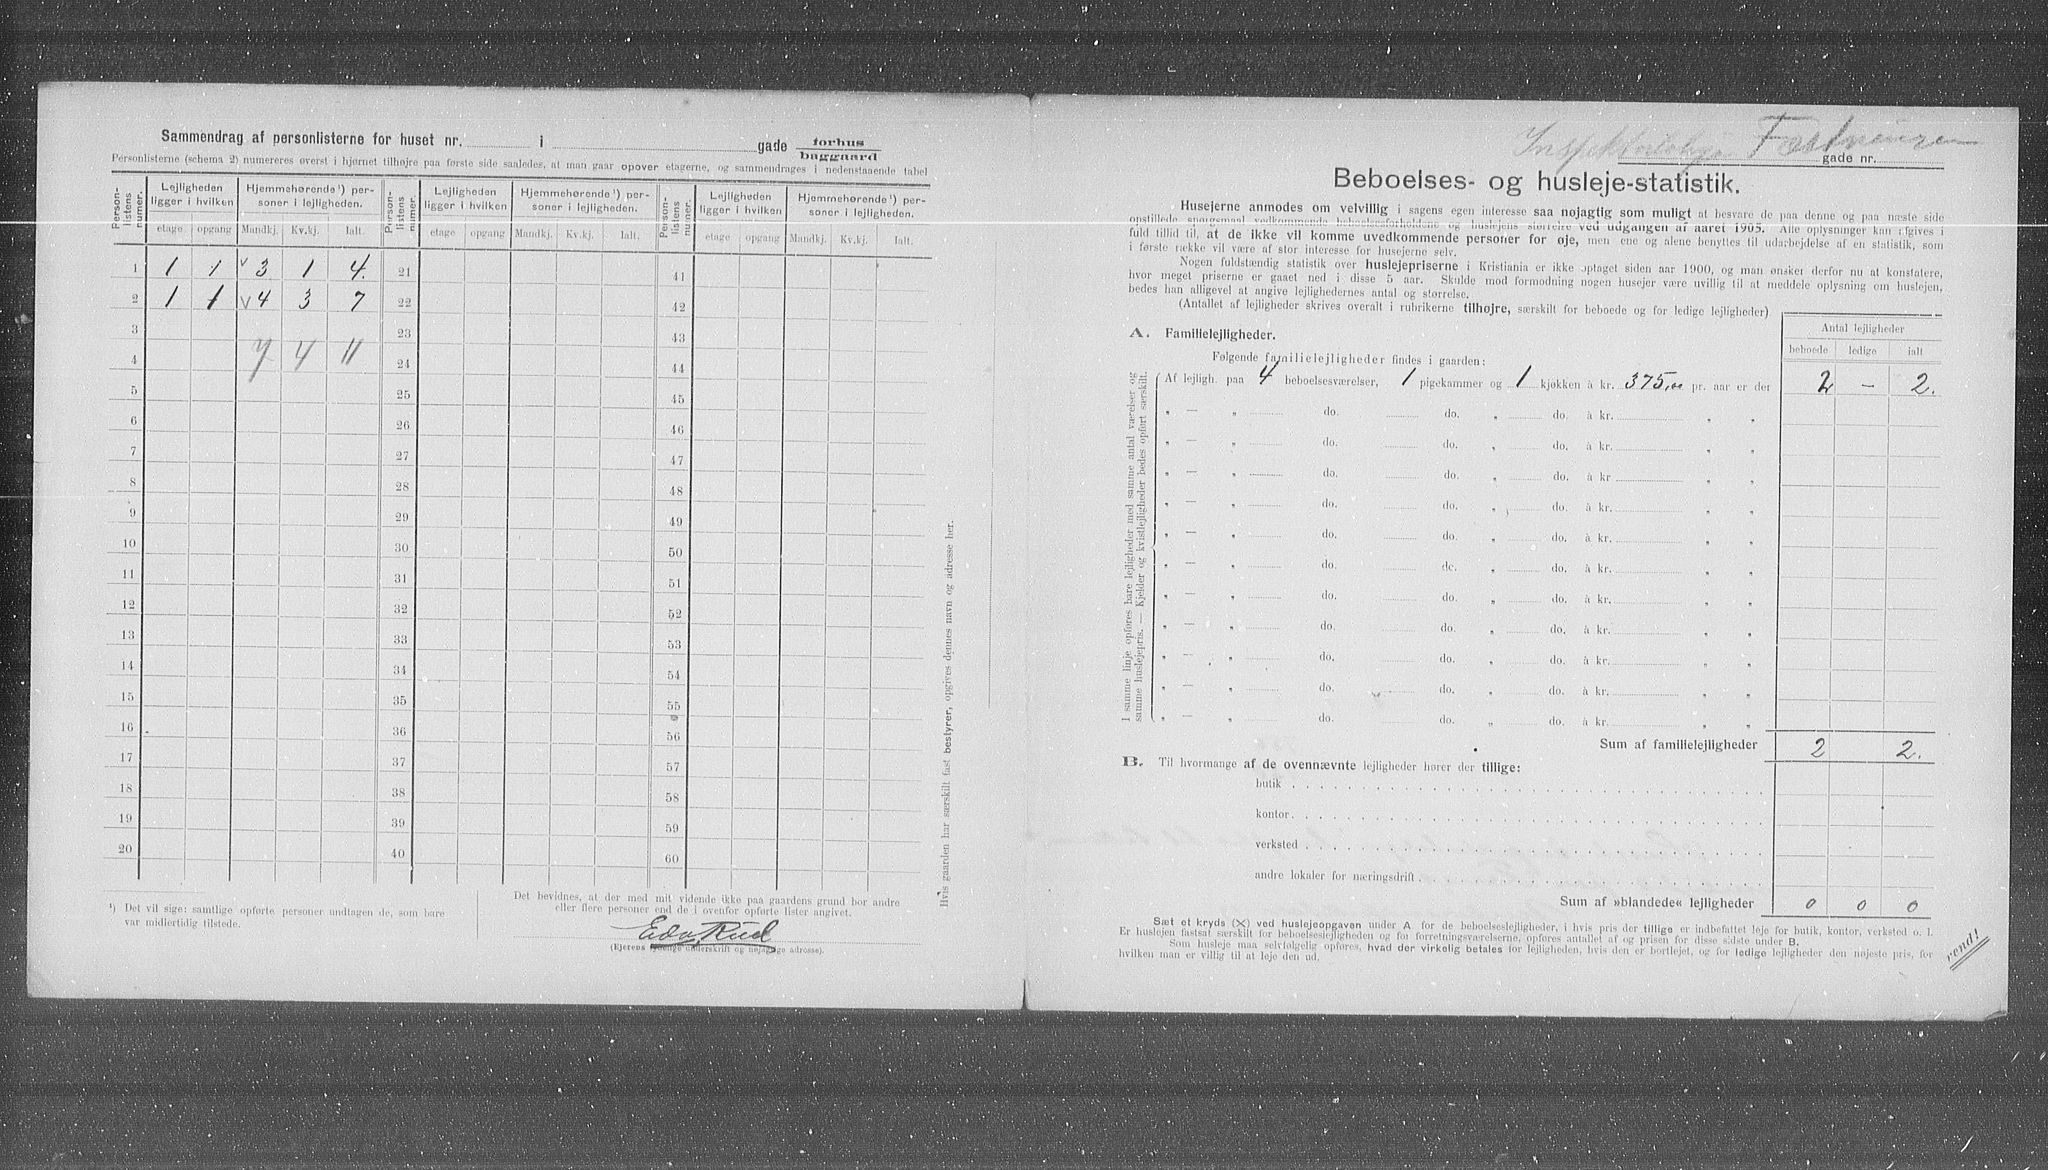 Sammendrag af personlisterne for huset nr. i gade forhus
baggaard
Personlisterne (schema 2) numereres øverst i hjørnet tilhøjre paa første side saaledes, at man gaar opover etagerne, og sammendrages i nedenstaaende tabel
Person-listens numer. Lejligheden ligger i hvilken Hjemmehørende¹) personer i lejligheden. Person-listens numer. Lejligheden ligger i hvilken Hjemmehørende¹) personer i lejligheden. Person-listens numer. Lejligheden ligger i hvilken Hjemmehørende¹) personer i lejligheden.
etage opgang Mandkj. Kv.kj. Ialt. etage opgang Mandkj. Kv.kj. Ialt. etage opgang Mandkj. Kv.kj. Ialt.
1 1 1 v 3 1 4. 21 41
2 1 1 v 4 3 7 22 42
3 23 43
4 7 4 11 24 44
5 25 45
6 26 46
7 27 47
8 28 48
9 29 49
10 30 50
11 31 51
12 32 52
13 33 53
14 34 54
15 35 55
16 36 56
17 37 57
18 38 58
19 39 59
20 40 60
¹) Det vil sige: samtlige opførte personer undtagen de, som bare
var midlertidig tilstede.
Det bevidnes, at der med mit vidende ikke paa gaardens grund bor andre
eller flere personer end de i ovenfor opførte lister angivet.
Edv. Ruud
(Ejerens tydelige underskrift og nøjagtige adresse).
Hvis gaarden har særskilt fast bestyrer, opgives dennes navn og adresse her.
Fæstningen
gade nr.
Beboelses- og husleje-statistik.
Husejerne anmodes om velvillig i sagens egen interesse saa nøjagtig som muligt at besvare de paa denne og paa næste side
opstillede spørgsmaal vedkommende beboelsesforholdene og huslejens størrelse ved udgangen af aaret 1905. Alle oplysninger kan afgives i
fuld tillid til, at de ikke vil komme uvedkommende personer for øje, men ene og alene benyttes til udarbejdelse af en statistik, som
i første række vil være af stor interesse for husejerne selv.
Nogen fuldstændig statistik over huslejepriserne i Kristiania er ikke optaget siden aar 1900, og man ønsker derfor nu at konstatere,
hvor meget priserne er gaaet ned i disse 5 aar. Skulde mod formodning nogen husejer være uvillig til at meddele oplysning om huslejen,
bedes han alligevel at angive lejlighedernes antal og størrelse.
(Antallet af lejligheder skrives overalt i rubrikerne tilhøjre, særskilt for beboede og for ledige lejligheder)
Antal lejligheder
beboede ledige ialt
A. Familielejligheder.
Følgende familielejligheder findes i gaarden:
Af lejligh. paa 4 beboelsesværelser, 1 pigekammer og 1 kjøkken à kr. 375,00 pr. aar er der 2 – 2.
„ — „ do. do. „ do. à kr. „ „
„ — „ do. do. „ do. à kr. „ „
„ — „ do. do. „ do. à kr „ „
„ — „ do. do. „ do. à kr. „ „
„ — „ do. do. „ do. à kr. „ „
„ — „ do. do. „ do. à kr. „ „
„ — „ do. do. „ do. à kr. „ „
„ — „ do. do. „ do. à kr. „ „
„ — „ do. do. „ do. à kr. „ „
„ — „ do. do. „ do. à kr. „ „
„ — „ do. do. „ do. à kr. „ „
I samme linje opføres bare lejligheder med samme antal værelser og
samme huslejepris. — Kjelder og kvistlejligheder bedes opført særskilt.
Sum af familielejligheder 2 2.
B. Til hvormange af de ovennævnte lejligheder hører der tillige:
butik
kontor
verksted
andre lokaler for næringsdrift
Sum af »blandede« lejligheder 0 0 0
Sæt et kryds (X) ved huslejeopgaven under A for de beboelseslejligheder, i hvis pris der tillige er indbefattet leje for butik, kontor, verksted o. l.
Er huslejen fastsat særskilt for beboelseslejligheden og for forretningsværelserne, opføres antallet af og prisen for disse sidste under B.
Som husleje maa selvfølgelig opføres, hvad der virkelig betales for lejligheden, hvis den er bortlejet, og for ledige lejligheder den nøjeste pris, for
hvilken man er villig til at leje den ud.
vend!